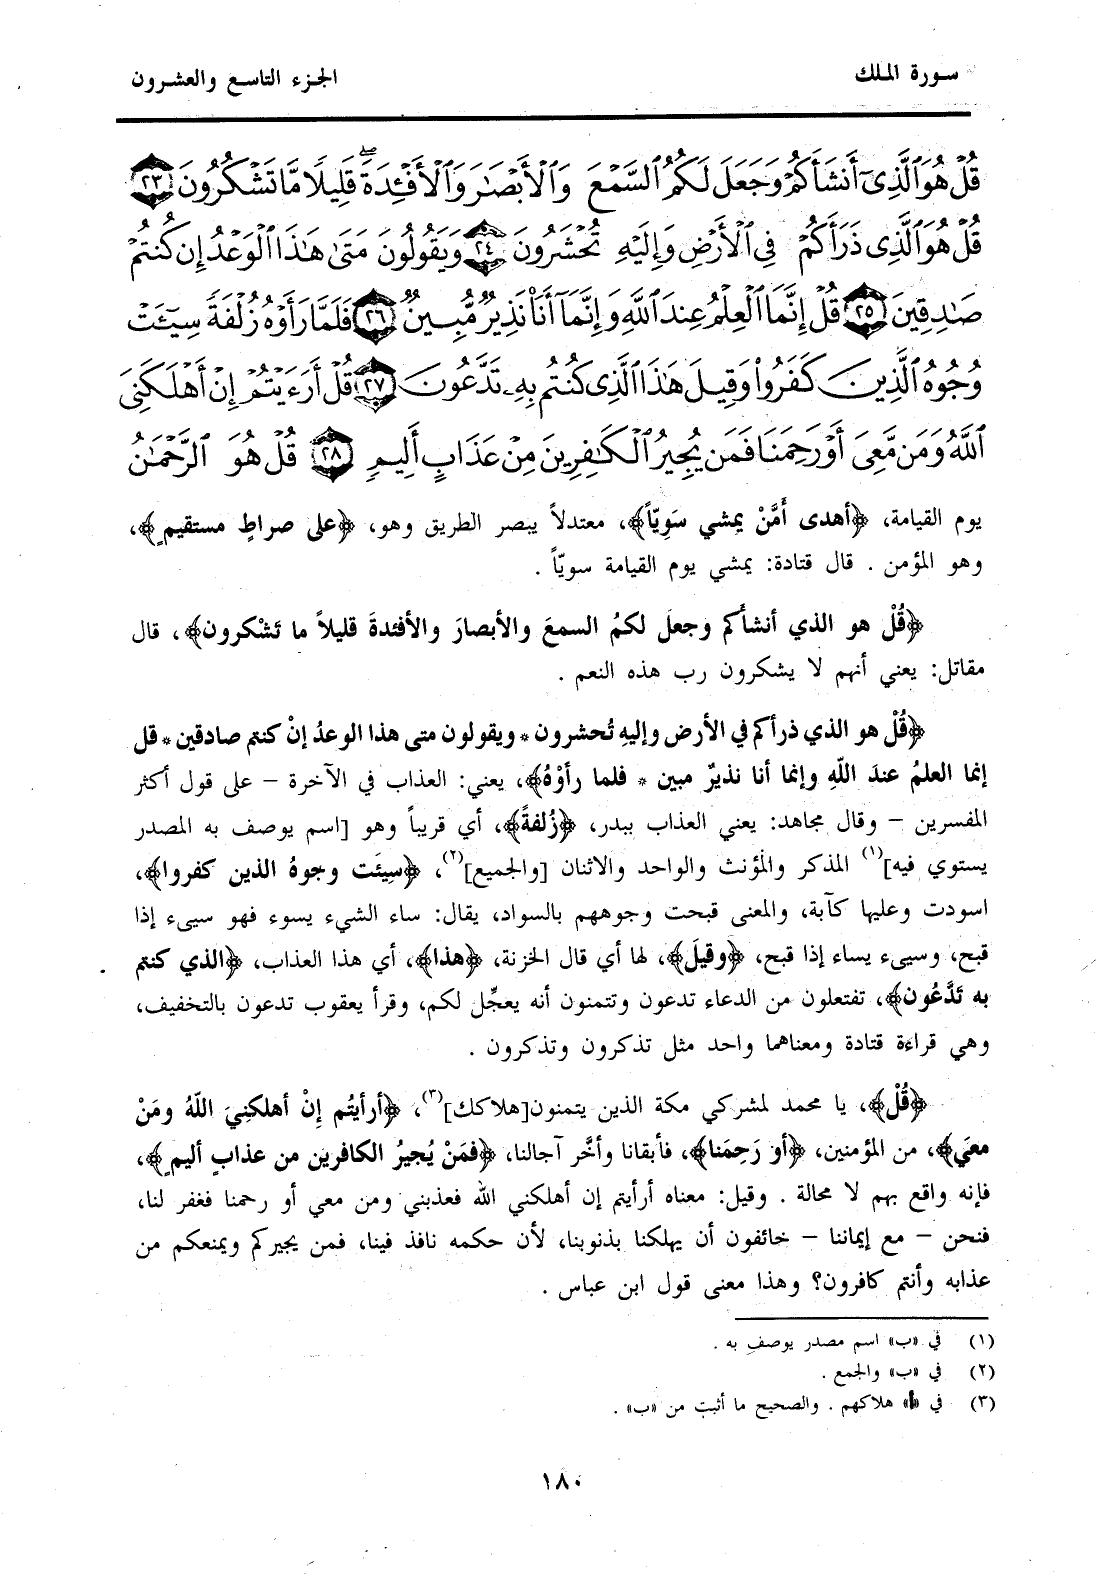 سورة الملك
الجزء التاسع والعشرون
قُلْ هُوَ ٱلَّذِىٓ أَنشَأَكُمْ وَجَعَلَ لَكُمُ ٱلسَّمْعَ وَٱلْأَبْصَٰرَ وَٱلْأَفْـِٔدَةَ ۖ قَلِيلًا مَّا تَشْكُرُونَ ٢٣
قُلْ هُوَ ٱلَّذِى ذَرَأَكُمْ فِى ٱلْأَرْضِ وَإِلَيْهِ تُحْشَرُونَ ٢٤ وَيَقُولُونَ مَتَىٰ هَٰذَا ٱلْوَعْدُ إِن كُنتُمْ
صَٰدِقِينَ ٢٥ قُلْ إِنَّمَا ٱلْعِلْمُ عِندَ ٱللَّهِ وَإِنَّمَآ أَنَا۠ نَذِيرٌ مُّبِينٌ ٢٦ فَلَمَّا رَأَوْهُ زُلْفَةً سِيٓـَٔتْ
وُجُوهُ ٱلَّذِينَ كَفَرُوا۟ وَقِيلَ هَٰذَا ٱلَّذِى كُنتُم بِهِۦ تَدَّعُونَ ٢٧ قُلْ أَرَءَيْتُمْ إِنْ أَهْلَكَنِىَ
ٱللَّهُ وَمَن مَّعِىَ أَوْ رَحِمَنَا فَمَن يُجِيرُ ٱلْكَٰفِرِينَ مِنْ عَذَابٍ أَلِيمٍ ٢٨ قُلْ هُوَ ٱلرَّحْمَٰنُ
يوم القيامة، ﴿أهدى أَمَّنْ يمشي سَوِيّاً﴾، معتدلاً يبصر الطريق وهو، ﴿على صراطٍ مستقيمٍ﴾،
وهو المؤمن . قال قتادة: يمشي يوم القيامة سويّاً .
﴿قُلْ هو الذي أنشأكم وجعلَ لكمُ السمعَ والأبصارَ والأفئدةَ قليلاً ما تَشْكرون﴾، قال
مقاتل: يعني أنهم لا يشكرون رب هذه النعم .
﴿قُلْ هو الذي ذرأكم في الأرض وإليهِ تُحشرون * ويقولون متى هذا الوعدُ إنْ كنتم صادقين * قل
إنما العلمُ عندَ اللّهِ وإنما أنا نذيرٌ مبين * فلما رأوْهُ﴾، يعني: العذاب في الآخرة – على قول أكثر
المفسرين – وقال مجاهد: يعني العذاب ببدر، ﴿زُلفةً﴾، أي قريباً وهو [اسم يوصف به المصدر
يستوي فيه](١) المذكر والمؤنث والواحد والاثنان [والجميع](٢)، ﴿سِيئَت وجوهُ الذين كفروا﴾،
اسودت وعليها كآبة، والمعنى قبحت وجوههم بالسواد، يقال: ساء الشيء يسوء فهو سيىء إذا
قبح، وسيىء يساء إذا قبح، ﴿وقيلَ﴾، لها أي قال الخزنة، ﴿هذا﴾، أي هذا العذاب، ﴿الذي كنتم
به تَدَّعُون﴾، تفتعلون من الدعاء تدعون وتتمنون أنه يعجِّل لكم، وقرأ يعقوب تدعون بالتخفيف،
وهي قراءة قتادة ومعناهما واحد مثل تذكرون وتذكرون .
﴿قُلْ﴾، يا محمد لمشركي مكة الذين يتمنون[هلاكك](٣)، ﴿أرأيتُم إِنْ أهلكنِيَ اللّهُ ومَنْ
معيَ﴾، من المؤمنين، ﴿أو رَحِمَنا﴾، فأبقانا وأخَّر آجالنا، ﴿فمَنْ يُجيرُ الكافرين من عذابٍ أليمٍ﴾،
فإنه واقع بهم لا محالة . وقيل: معناه أرأيتم إن أهلكني الله فعذبني ومن معي أو رحمنا فغفر لنا،
فنحن – مع إيماننا – خائفون أن يهلكنا بذنوبنا، لأن حكمه نافذ فينا، فمن يجيركم ويمنعكم من
عذابه وأنتم كافرون؟ وهذا معنى قول ابن عباس .
(١) في «ب» اسم مصدر يوصف به .
(٢) في «ب» والجمع .
(٣) في «أ» هلاكهم . والصحيح ما أثبت من «ب» .
١٨٠